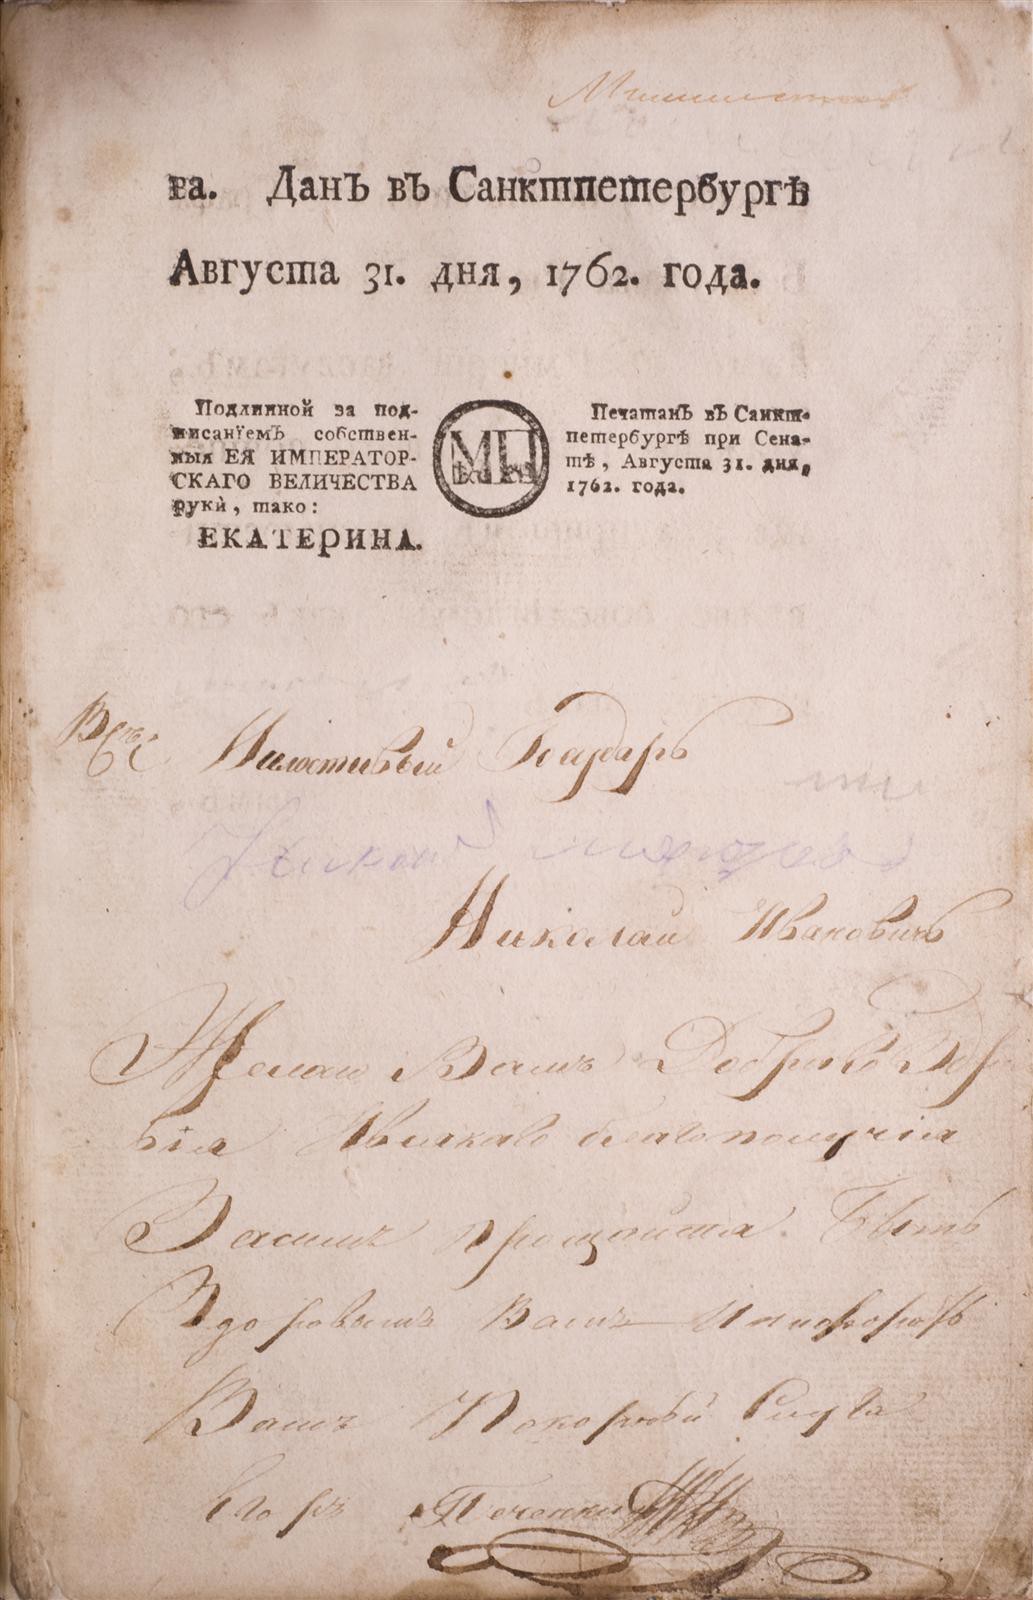 ва. Данъ въ Санктпетербургѣ
Августа 31. дня, 1762. года.
Подлинной за под-
писанїемъ собствен-
ныя ЕЯ ИМПЕРАТОР-
СКАГО ВЕЛИЧЕСТВА
руки, тако:
ЕКАТЕРИНА.
МП
Печатанъ въ Санкт-
петербургѣ при Сена-
тѣ, Августа 31. дня,
1762. года.
Милостивый Государь
Николай Ивановичь
Желаю Вамъ Доброво Здра
вія Ивсякаво благополучія
Засимъ прощайте Быть
Здоровымъ Вамъ
Вашъ Покорный Слуга
Егоръ